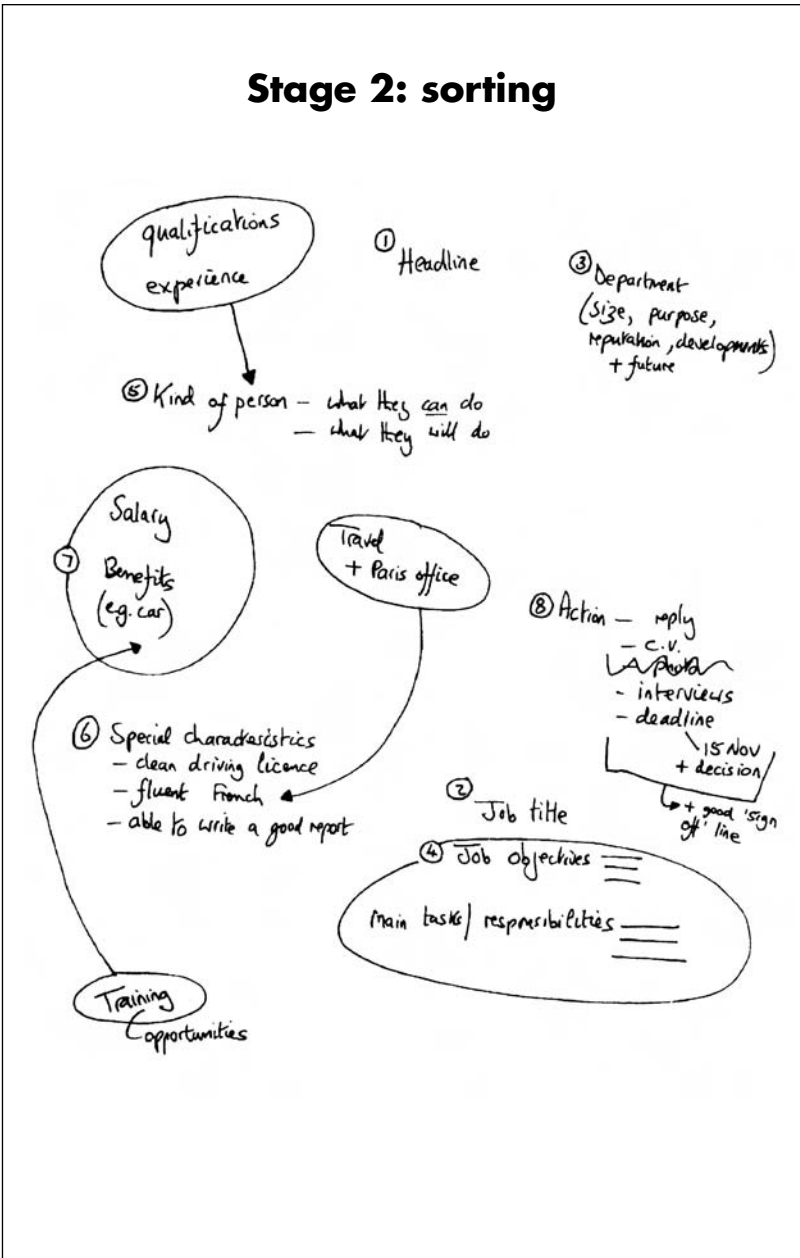 Stage 2: sorting
qualifications
experience
① Headline
③ Department
(size, purpose,
reputation, developments)
+ future
⑤ Kind of person – what they can do
– what they will do
Salary
⑦ Benefits
(e.g. car)
Travel
+ Paris office
⑧ Action – reply
– C.V.
– photo
– interviews
– deadline
15 Nov
+ decision
+ good 'sign
off' line
⑥ Special characteristics
– clean driving licence
– fluent French
– able to write a good report
② Job title
④ Job objectives
Main tasks/ responsibilities
Training
opportunities